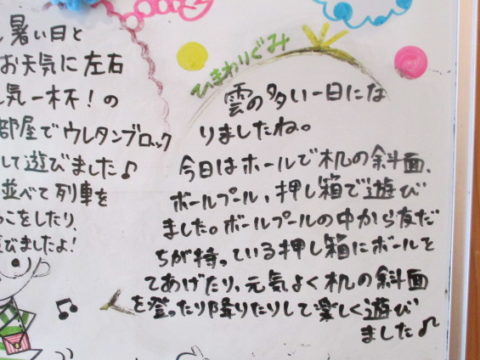 暑い日と
お天気に左右
気一杯！の
部屋でウレタンブロック
して遊びました♪
並べて列車を
っこをしたり、
びましたよ！
ひまわりぐみ
雲の多い一日にな
りましたね。
今日はホールで机の斜面、
ボールプール、押し箱で遊び
ました。ボールプールの中から友だ
ちが持っている押し箱にボールを
てあげたり、元気よく机の斜面
を登ったり降りたりして楽しく遊び
ました♪